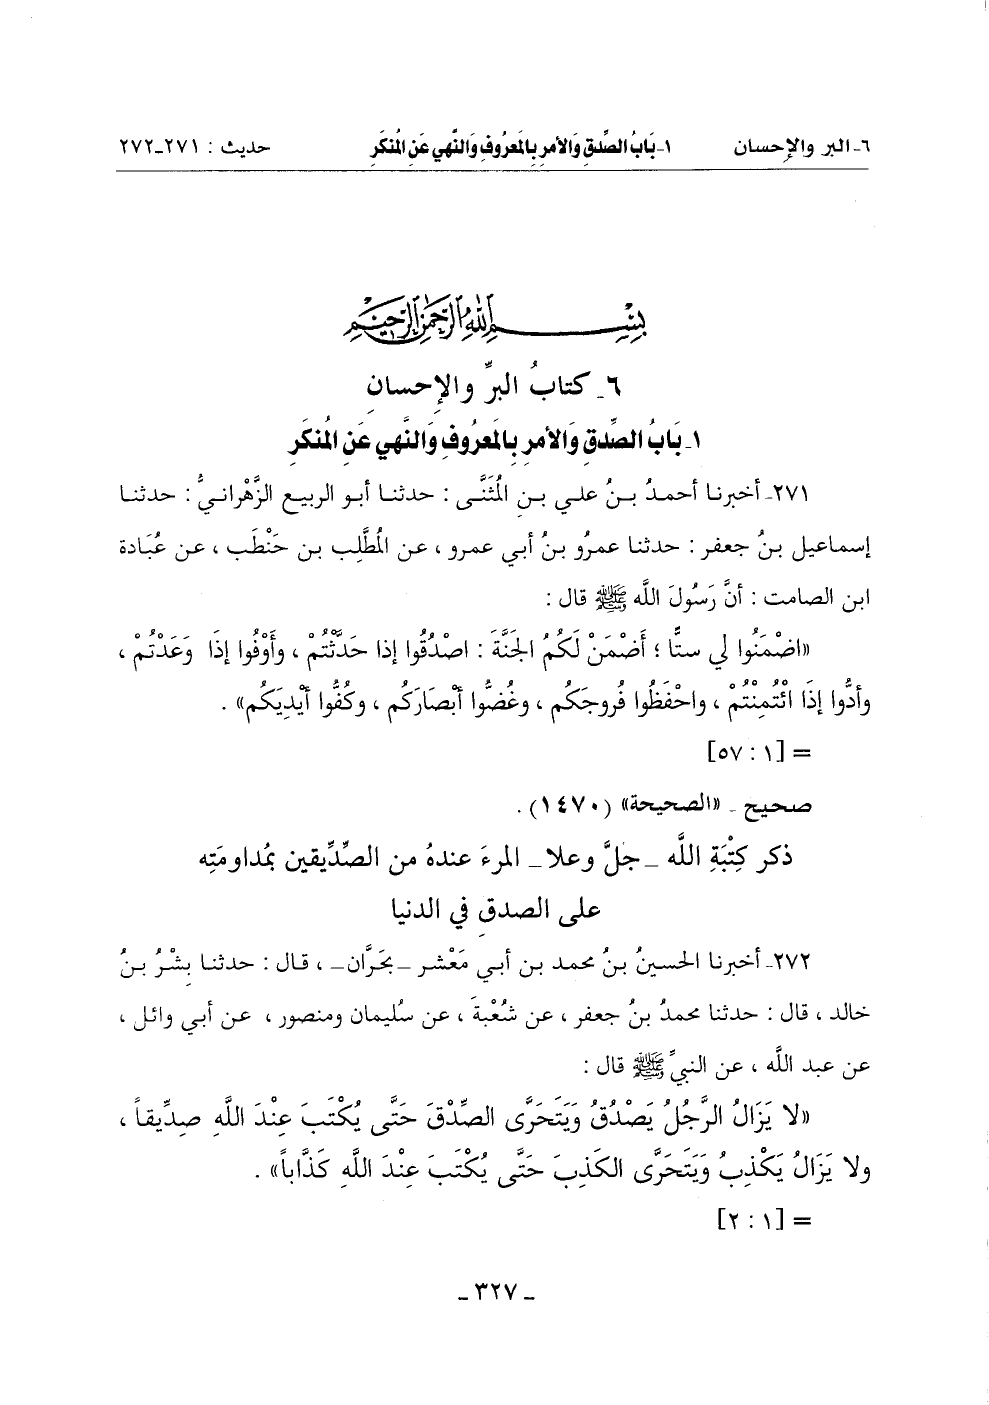 ٦- البر والإحسان ١- بَابُ الصِّدقِ وَالأمرِ بِالمَعرُوفِ وَالنَّهي عَنِ المُنكَر حديث : ٢٧١-٢٧٢
بِسْمِ اللهِ الرَّحْمَنِ الرَّحِيمِ
٦- كتابُ البرِّ والإحسانِ
١- بَابُ الصِّدقِ وَالأمرِ بِالمَعرُوفِ وَالنَّهي عَنِ المُنكَرِ
٢٧١- أخبرنا أحمدُ بنُ علي بنِ المُثَنَّى : حدثنا أبو الربيع الزَّهْرانيُّ : حدثنا
إسماعيل بنُ جعفر : حدثنا عمرُو بنُ أبي عمرو ، عن المُطَّلِب بن حَنْطَب ، عن عُبَادة
ابن الصامت : أنَّ رَسُولَ اللَّه ﷺ قال :
«اضْمَنُوا لي ستًّا ؛ أَضْمَنْ لَكُمُ الجَنَّةَ : اصْدُقُوا إذا حَدَّثْتُمْ ، وأَوْفُوا إذَا وَعَدْتُمْ ،
وأدُّوا إذَا ائْتُمِنْتُمْ ، واحْفَظُوا فُروجَكُم ، وغُضُّوا أبْصَارَكُم ، وكُفُّوا أيْدِيَكُم» .
= [١ : ٥٧]
صحيح - «الصحيحة» (١٤٧٠) .
ذكر كِتْبَةِ اللَّه - جلَّ وعلا- المرءَ عندهُ من الصِّدِّيقين بمُداومَتِه
على الصدقِ في الدنيا
٢٧٢- أخبرنا الحسينُ بنُ محمد بن أبي مَعْشر -بحَرَّان- ، قال : حدثنا بِشْرُ بنُ
خالد ، قال : حدثنا محمدُ بنُ جعفر ، عن شُعْبةَ ، عن سُليمان ومنصور ، عن أبي وائل ،
عن عبد اللَّه ، عن النبيِّ ﷺ قال :
«لا يَزَالُ الرَّجُلُ يَصْدُقُ وَيَتَحَرَّى الصِّدْقَ حَتَّى يُكْتَبَ عِنْدَ اللَّهِ صِدِّيقاً ،
ولا يَزَالُ يَكْذِبُ وَيَتَحَرَّى الكَذِبَ حَتَّى يُكْتَبَ عِنْدَ اللَّهِ كَذَّاباً» .
= [١ : ٢]
- ٣٢٧ -